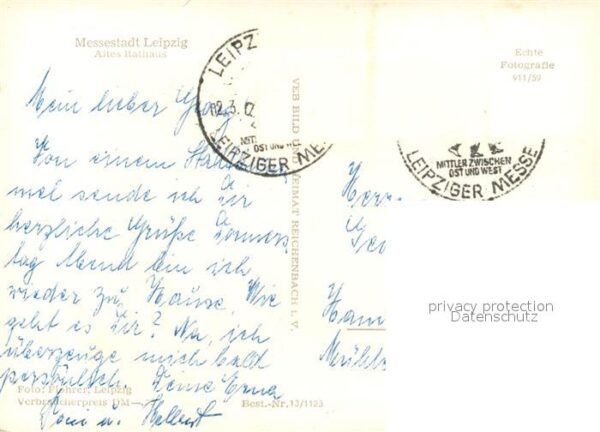 Messestadt Leipzig
Altes Rathaus
Mein lieber
Von einem
mal sende ich Dir
herzliche Grüße Donners
tag Abend bin ich
wieder zu Hause. Wie
geht es Dir? Na, ich
überzeuge mich bald
persönlich. Deine Erna
Foto: Leipzig
Verbraucherpreis DM
Best.-Nr. 13/1123
VEB BILD HEIMAT REICHENBACH i. V.
LEIPZ
12.3.
OST UND WEST
LEIPZIGER ME
Echte
Fotografie
911/59
MITTLER ZWISCHEN
OST UND WEST
LEIPZIGER MESSE
Her
Ge
Ham
Mühl
privacy protection
Datenschutz